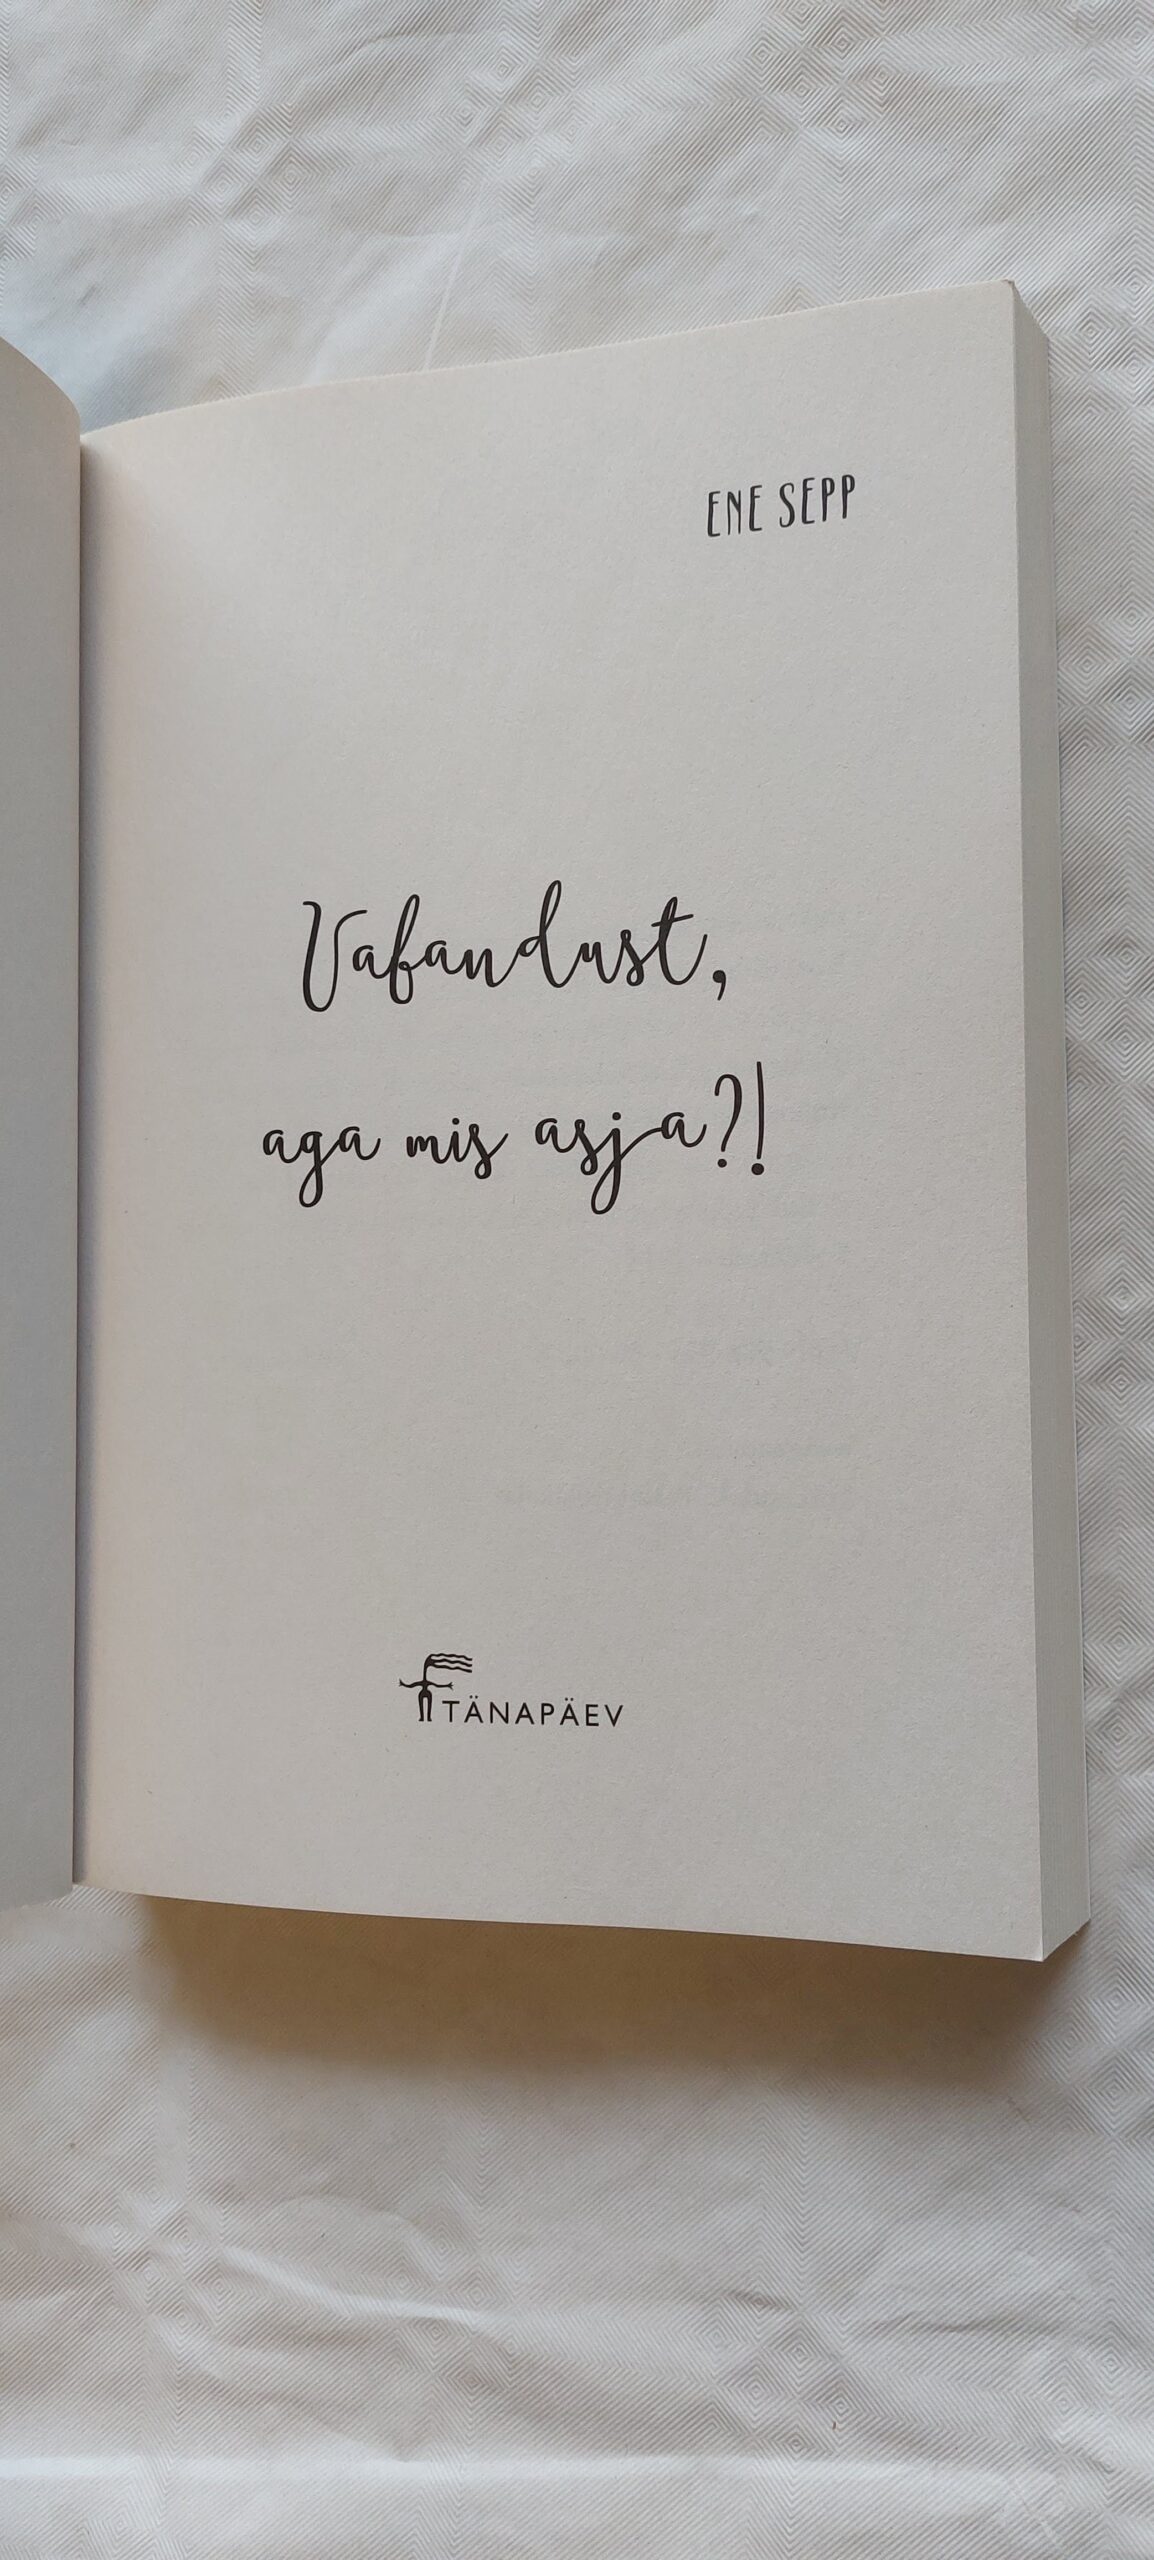 ENE SEPP
Vabandust,
aga mis asja?!
TÄNAPÄEV